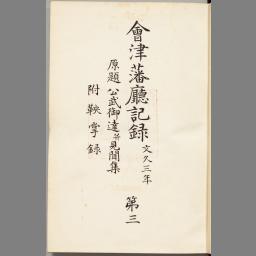 會津藩廳記録 文久三年 第三
原題 公武御達并見聞集
附鞅掌録